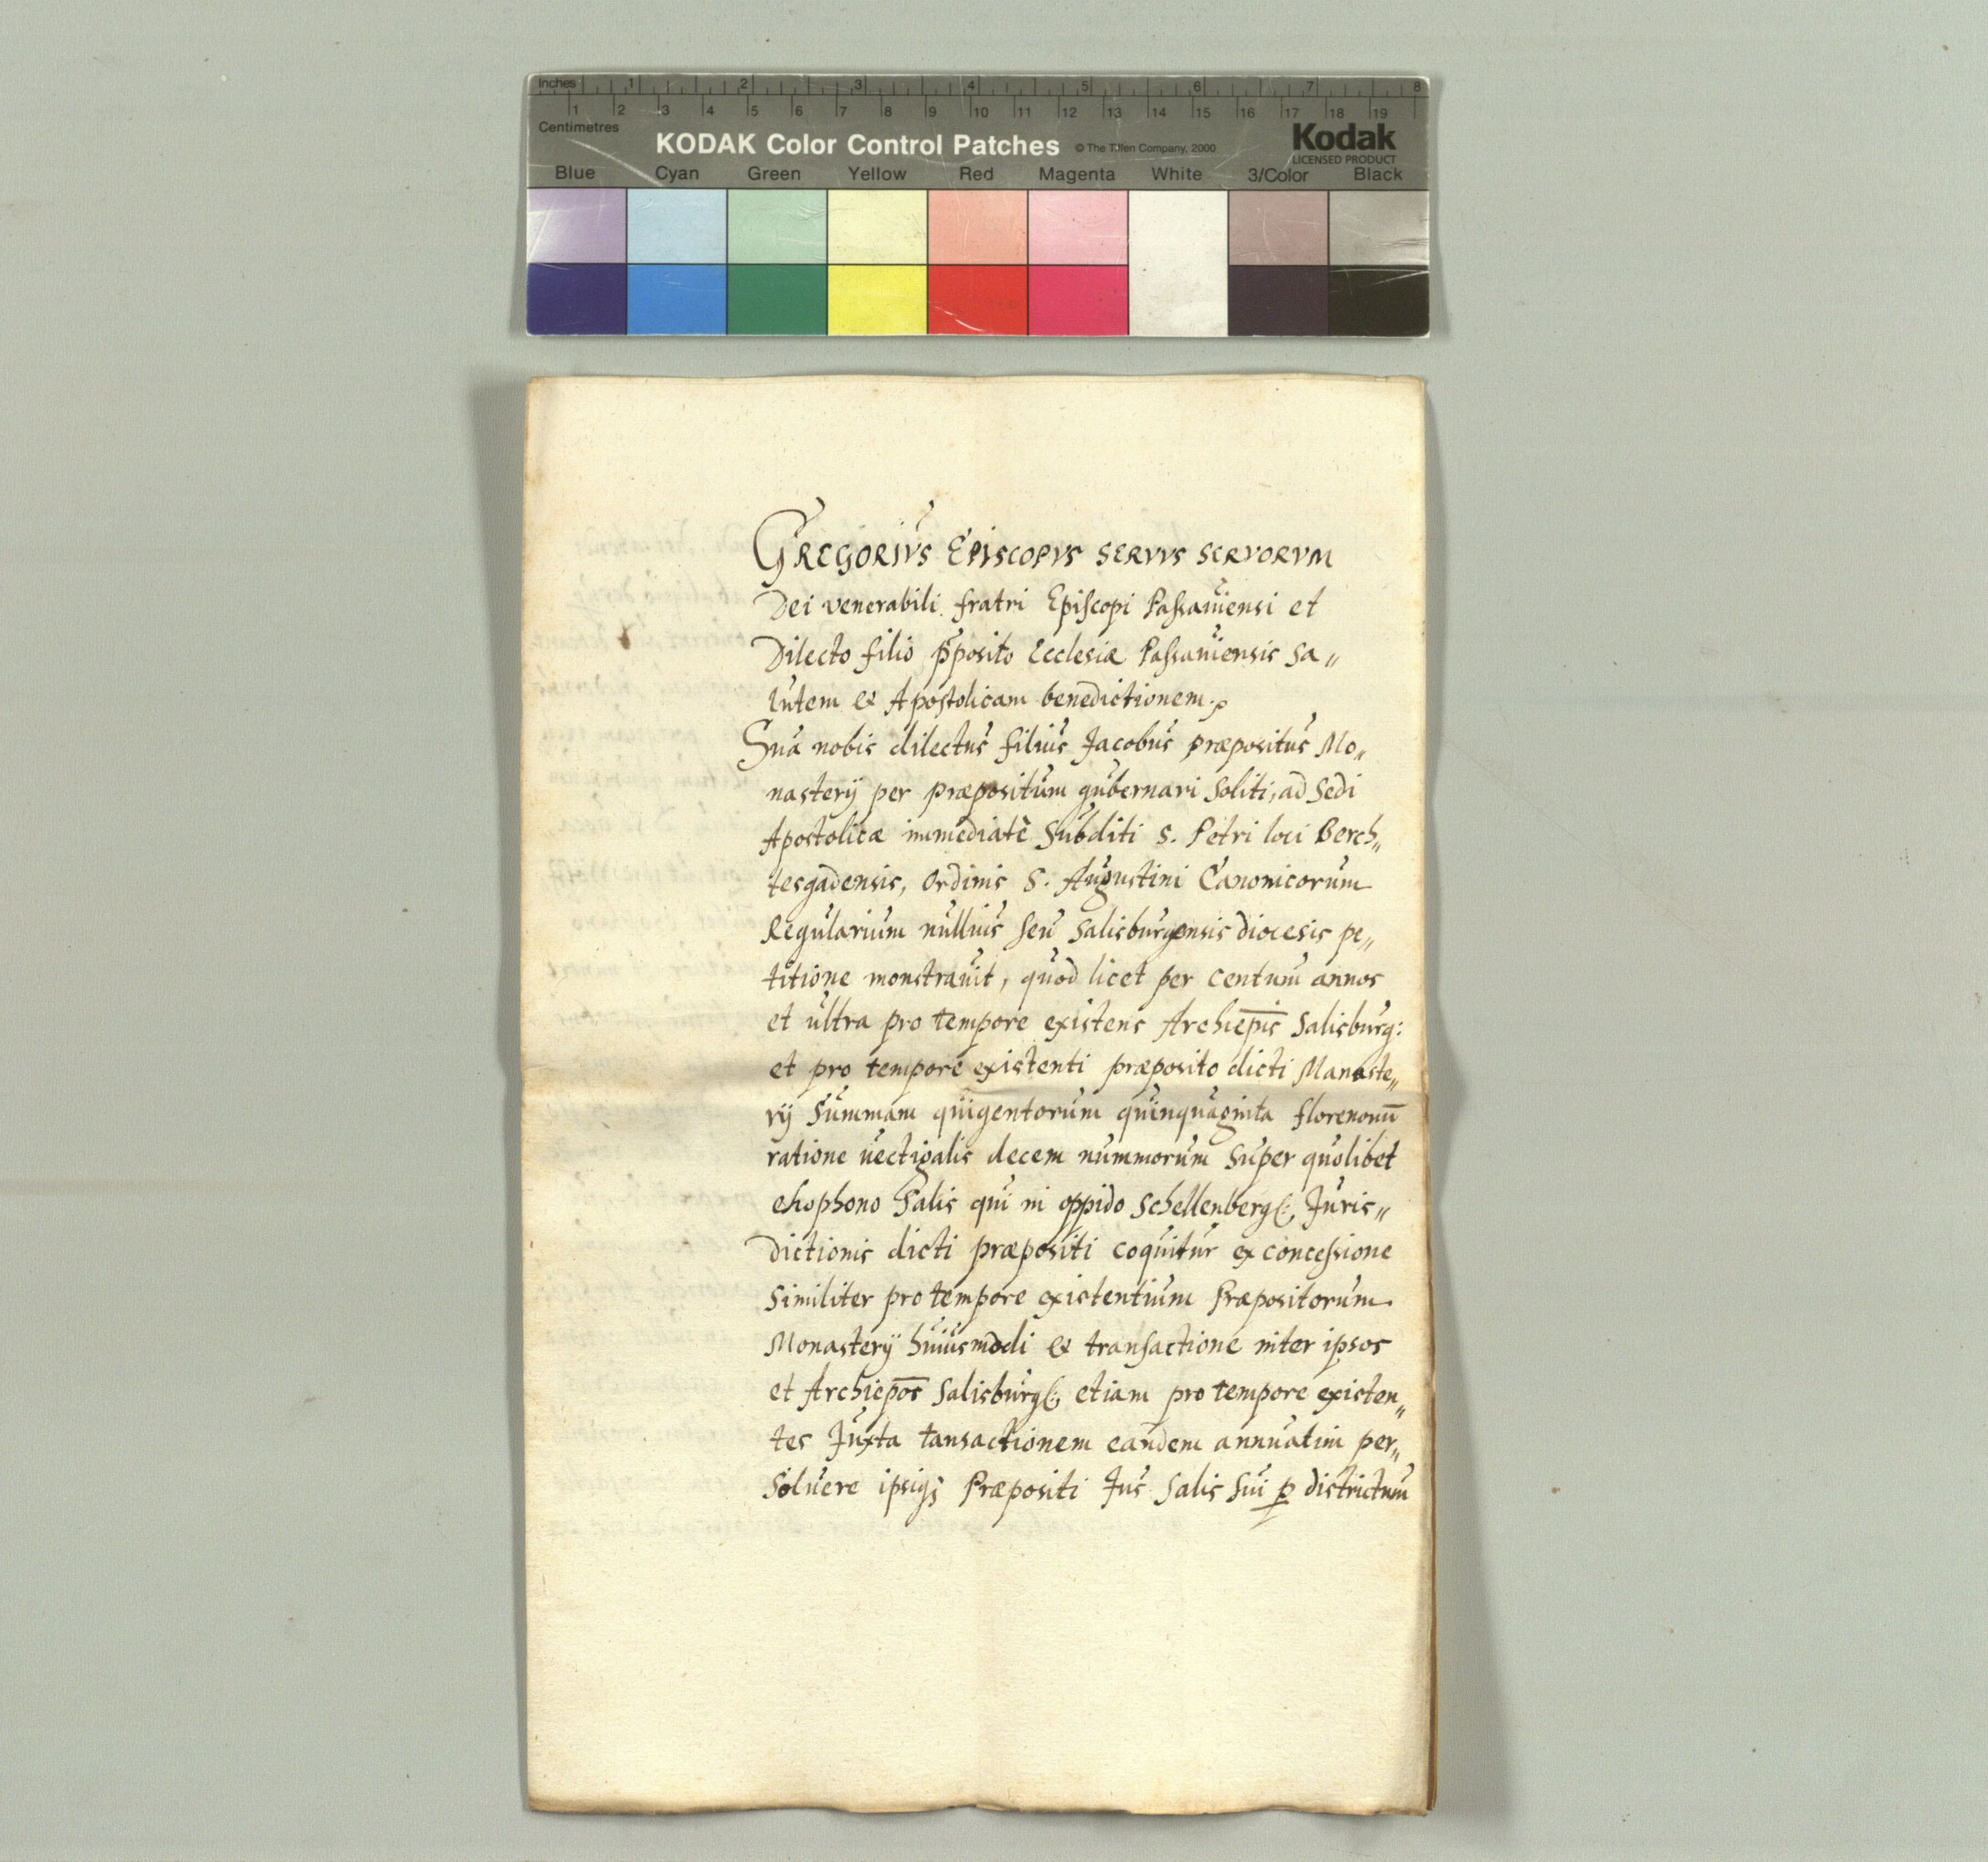 Inches 1 2 3 4 5 6 7 8
1 2 3 4 5 6 7 8 9 10 11 12 13 14 15 16 17 18 19
Centimetres
KODAK Color Control Patches © The Tiffen Company, 2000 Kodak
LICENSED PRODUCT
Blue Cyan Green Yellow Red Magenta White 3/Color Black
GREGORIVS EPISCOPVS SERVVS SERVORVM
Dei venerabili fratri Episcopi Passauiensi et
Dilecto filio p̄posito Ecclesiæ Passauiensis sa„
lutem & Apostolicam benedictionem.
Sua nobis dilectus filius Jacobus præpositus Mo„
nasterij per præpositum gubernari soliti, ad Sedi
Apostolicæ immediatè Subditi S. Petri loci Berch„
tesgadensis, Ordinis S. Augustini Canonicorum
Regularium nullius seu Salisburgensis diocesis pe„
titione monstrauit, quod licet per centum annos
et ultra pro tempore existens Archiep̄is Salisburg:
et pro tempore existenti præposito dicti Monaste„
rij Summam quigentorum quinquaginta florenorū
ratione uectigalis decem nummorum super quolibet
chophono Salis qui in oppido Schellenberg: Juris„
dictionis dicti præpositi coquitur ex concessione
similiter pro tempore existentium Præpositorum
Monasterij huiusmodi & transactione inter ipsos
et Archiep̄os Salisburg: etiam pro tempore existen„
tes Juxta tansactionem eandem annuatim per„
soluere ipsiq; Præpositi Jus Salis sui ꝑ districtum